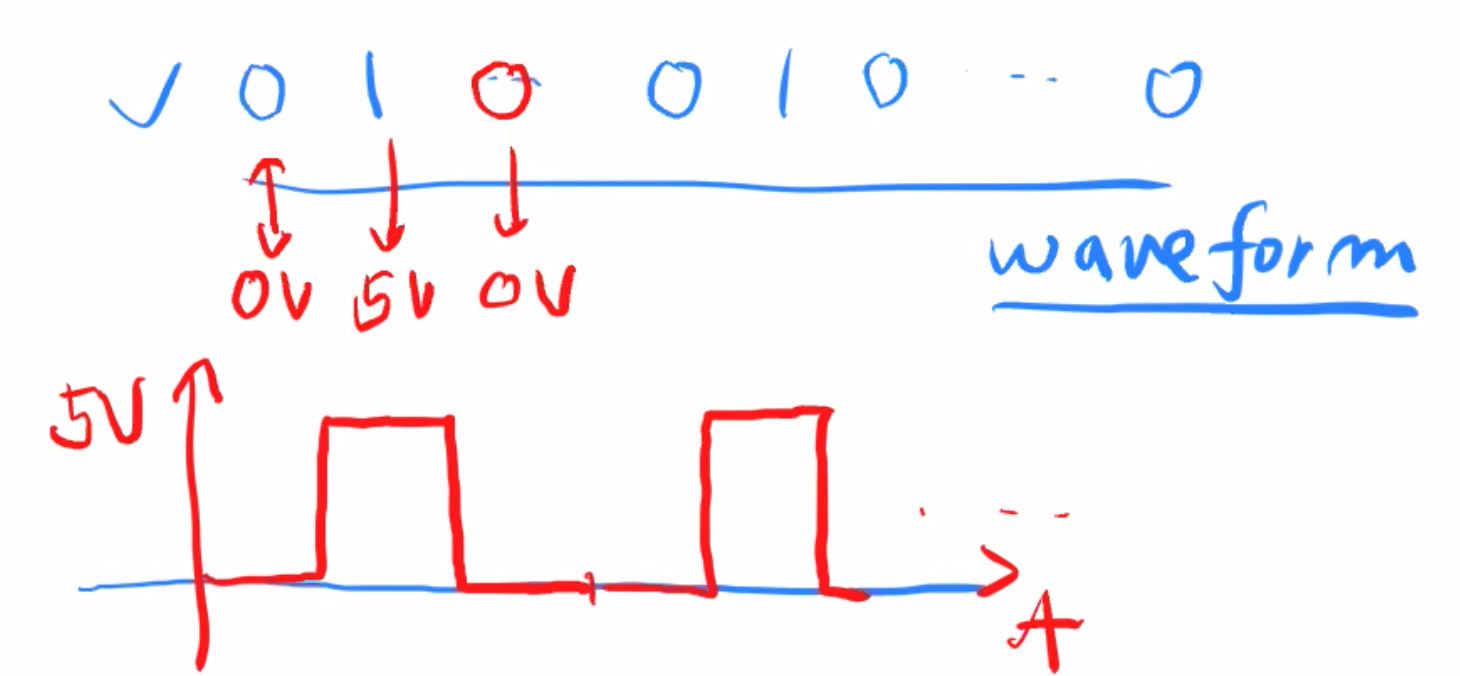 ✓ 0 1 0 0 1 0 ... 0
0V 5V 0V
waveform
5V
A